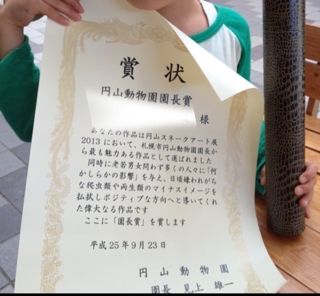 賞状
円山動物園園長賞
様
あなたの作品は円山スネークアート展
2013において、札幌市円山動物園園長か
ら最も魅力ある作品として選ばれました
同時に老若男女問わず多くの人々に「何
かしらかの影響」を与え、日頃嫌われがち
な爬虫類や両生類のマイナスイメージを
払拭しポジティブな方向へと導いてくれ
た偉大なる作品です
ここに「園長賞」を賞します
平成25年9月23日
円山動物園
園長 見上雄一